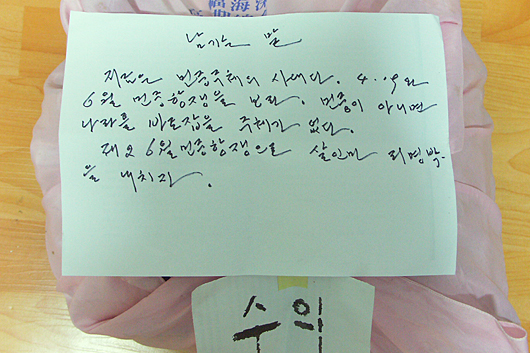 福海
남기는 말
지금은 민중주체의 시대다. 4.19와
6월 민중항쟁을 보라. 민중이 아니면
나라를 바로잡을 주체가 없다.
제2 6월민중항쟁으로 살인마 리명박
을 내치자.
수의